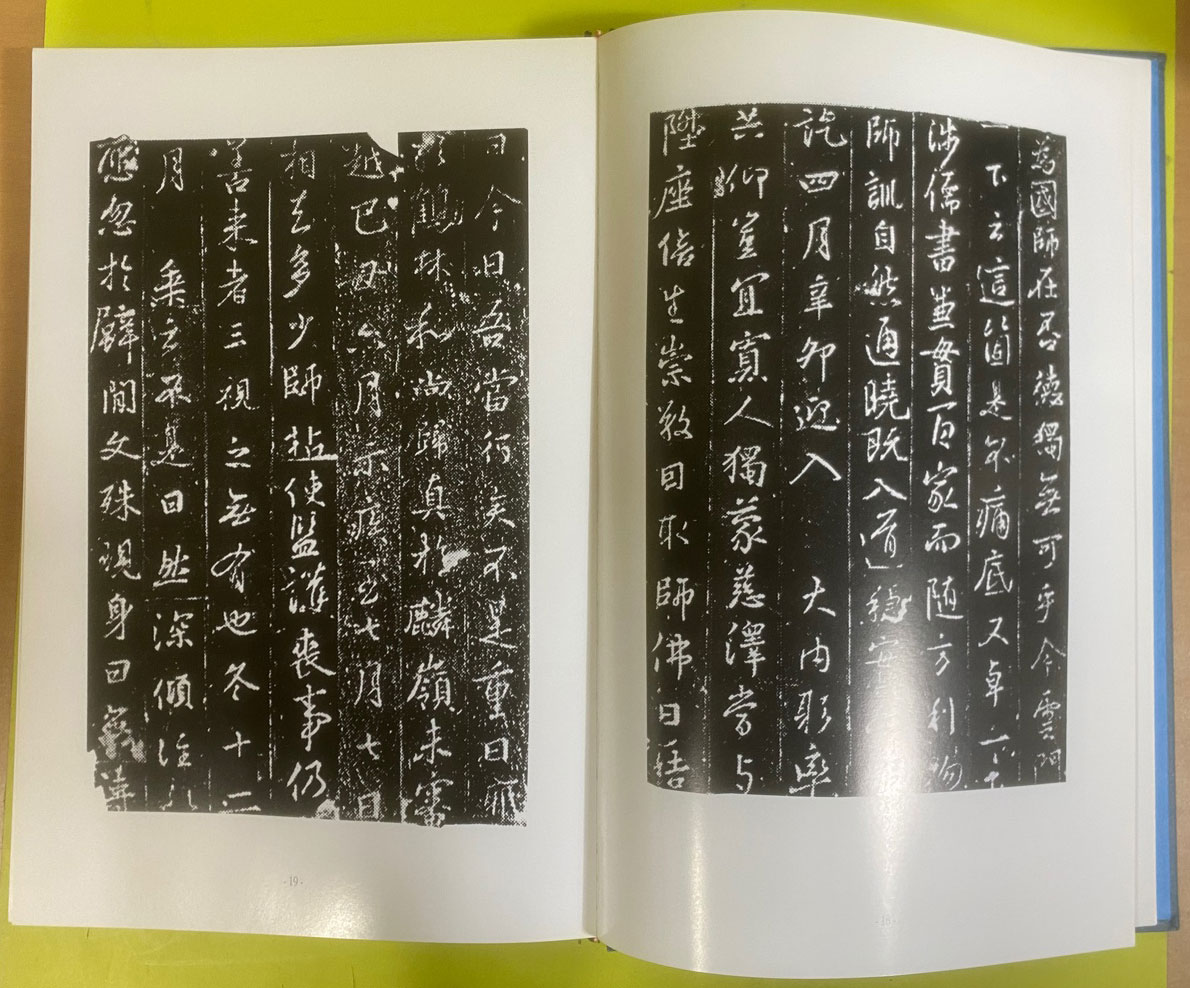 爲國師在否德獨無可乎今雲門
一下云這箇是不痛底又卓一下
涉儒書兼貫百家而随方利物
師訓自然通曉既入道穩安
訖四月辛卯迎入 大内躬率
共仰豈宜寡人獨蒙慈澤當与
陞座倍生崇敬因取師佛日結
-18-
日今日吾當行矣不是重日耶
鶴林和尚歸真於麟嶺未審
越己丑六月示疾至七月七日
相去多少師拈使監護喪事仍
善来者三視之無有也冬十二
月 乘云不是日然深傾注於
應忽於壁間文殊現身曰無
-19-